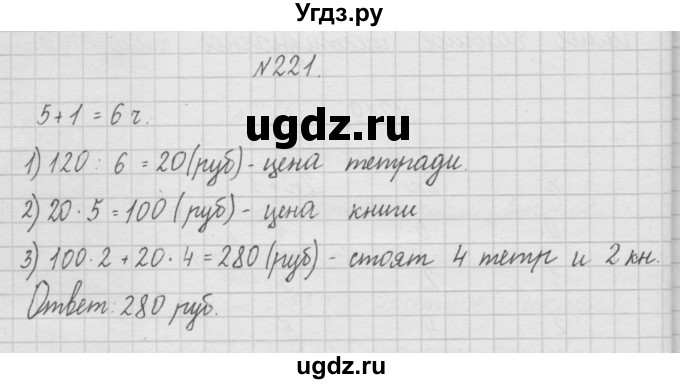 Угдз.ру
№221.
5+1 = 6 ч.
ugdz.ru
1) 120 : 6 = 20 (руб) - цена тетради.
2) 20 · 5 = 100 (руб) - цена книги
3) 100 · 2 + 20 · 4 = 280 (руб) - стоят 4 тетр и 2 кн.
Ответ: 280 руб.
ugdz.ru